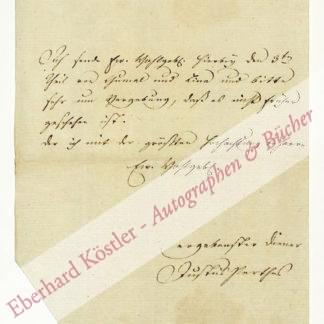 Ich sende Ew. Wohlgeb. hierbey den 3ten
Theil von Thümal und Lina und bitte
sehr um Vergebung, daß es nicht früher
geschehen ist.
der ich mit der größten Hochachtung
Ew. Wohlgeb.
ergebenster Diener
Justus Perthes
Eberhard Köstler - Autographen & Bücher